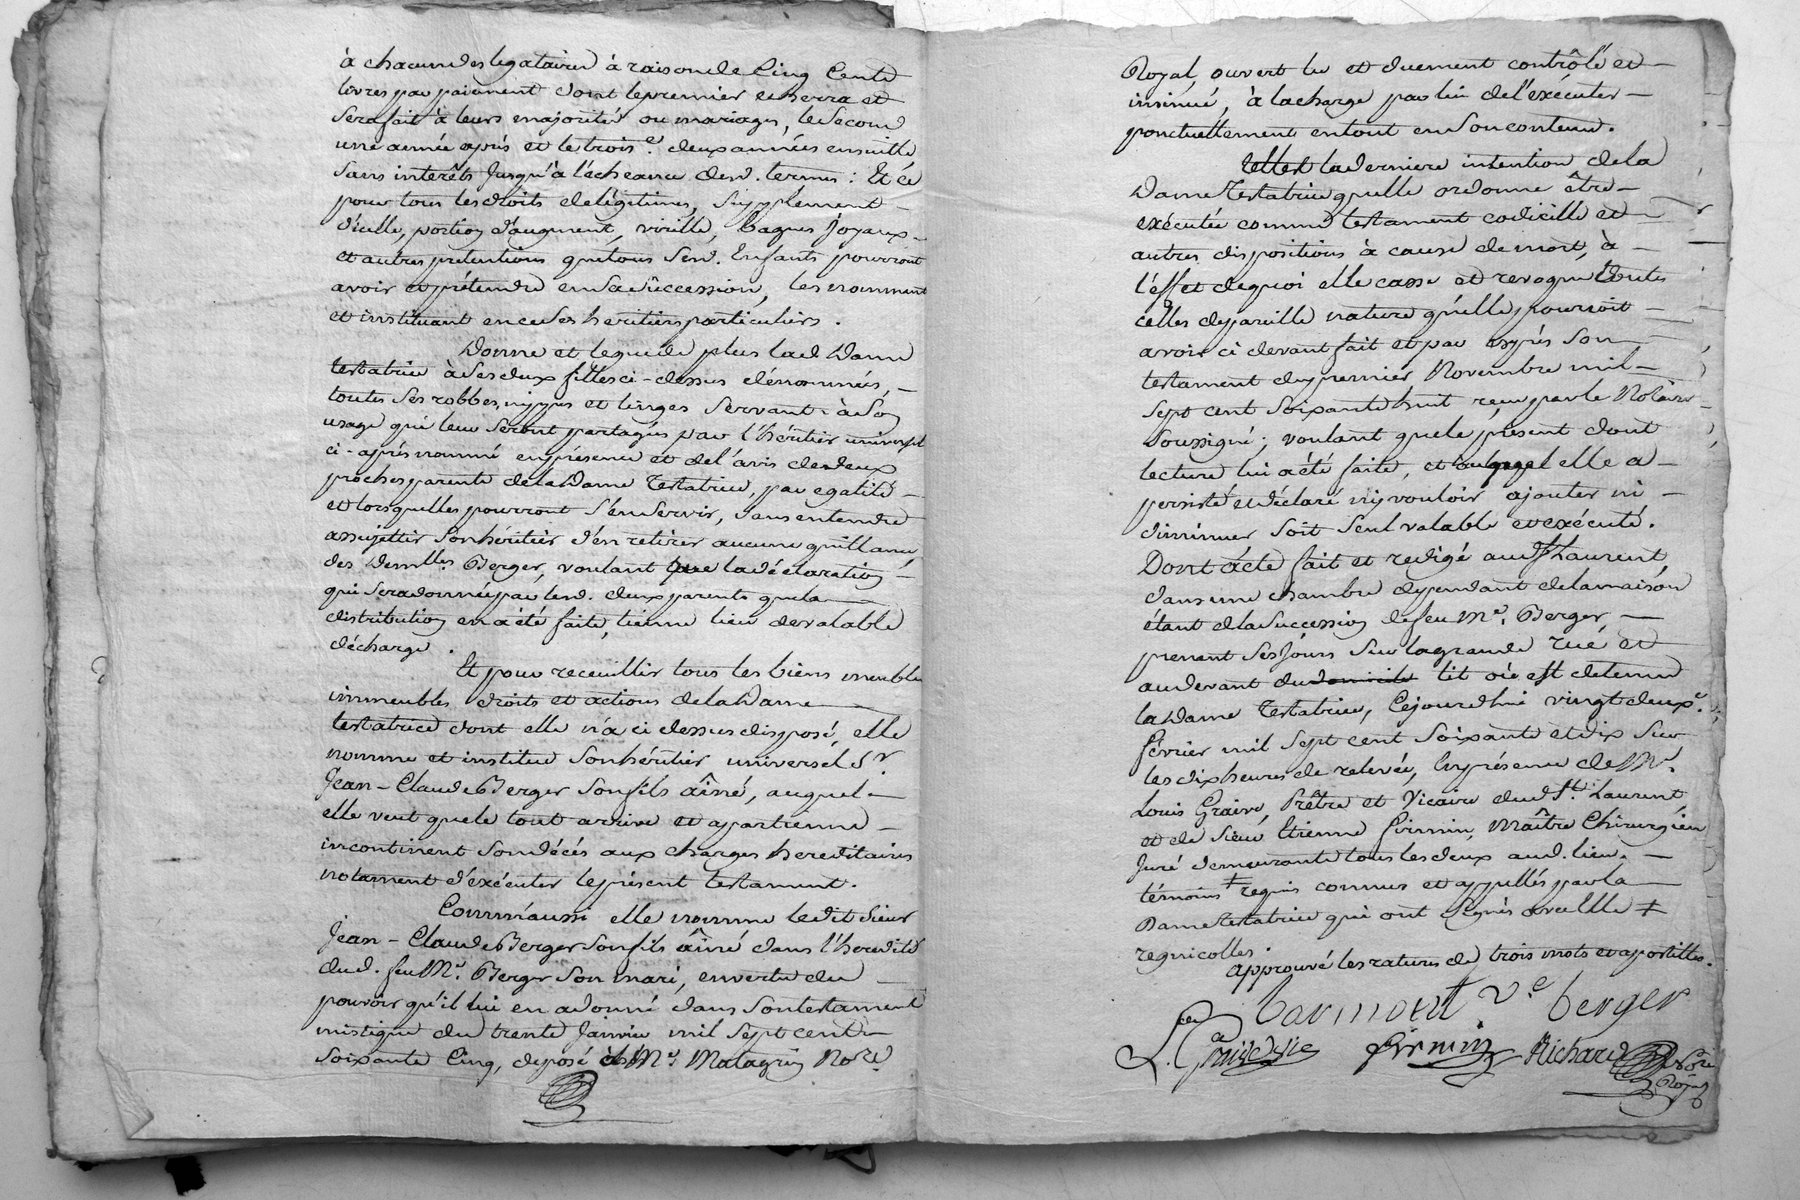 à chacun des legataires à raison de Cinq Cents
livres par paiement dont le premier echerra et
sera fait à leurs majorités ou mariages, le second
une année après et le trois.e deux années ensuitte
sans interêts jusqu'à l'écheance desd. termes : Et ce
pour tous les droits de légitime, Supplément
d'icelle, portion d'augment, virille, bagues joyaux
et autres prétentions que tous sesd. Enfants pourront
avoir et prétendre en sa succession, les nommant
et instituant en ce ses heritiers particuliers.
Donne et legue de plus lad Dame
testatrice à ses deux filles ci-dessus dénommées,
toutes ses robbes, nippes et linges servant à son
usage qui leur seront partagés par l'héritier universel
ci-après nommé en présence et de l'avis de deux
proches parents de la Dame Testatrice, par egalité
et lorsquelles pourront s'en servir, sans entendre
assujettir son héritier d'en retirer aucune quittance
des Demlles Berger, voulant que la déclaration
qui sera donnée par lesd. deux parents que la
distribution en a été faite, tienne lieu de valable
décharge.
Et pour receuillir tous les biens meubles
immeubles droits et actions de la Dame
testatrice dont elle n'a ci dessus disposé, elle
nomme et institue son héritier universel Sr.
Jean-Claude Berger son fils aîné, auquel
elle veut que le tout arrive et apartienne
incontinent son décés aux charges hereditaires
notament d'exécuter le présent testament.
Comm'aussi elle nomme ledit Sieur
Jean-Claude Berger son fils aîné dans l'heredité
dud. feu Me. Berger son mari, en vertu du
pouvoir qu'il lui en a donné dans son testament
mistique du trente Janvier mil sept cent
soixante Cinq, déposé chés Me. Matagrin Nore.
Royal, ouvert lu et duement contrôlé et
insinué, à la charge par lui de l'exécuter
ponctuellement en tout en son contenu.
Telle est la derniere intention de la
Dame Testatrice quelle ordonne être
exécutée comme testament codicille et
autres dispositions à cause de mort, à
l'effet de quoi elle casse et revoque toutes
celles de pareille nature qu'elle pourroit
avoir ci devant fait et par exprès son
testament du premier Novembre mil
sept cent soixante huit reçu par le Notaire
soussigné ; voulant que le présent dont
lecture lui a été faite, et auquel elle a
persisté et déclaré n'y vouloir ajouter ni
diminuer soit seul valable et exécuté.
Dont acte fait et redigé aud St Laurent,
dans une chambre dependant de la maison
étant de la Succession de feu Me. Berger
prenant ses jours sur la grande rue et
au devant du domicile lit où est detenue
la Dame Testatrice, Cejourdhui vingt deuxe.
fevrier mil sept cent soixante et dix sur
les dix heures de relevée, En présence de Mre.
Louis Graive, Prêtre et Vicaire dud St. Laurent
et de Sieur Etienne Firmin, Maître Chirurgien
Juré demeurants tous les deux aud. lieu.
témoins ‡ requis connus et appellés par la
Dame testatrice qui ont signés avec elle ‡
regnicolles.
approuvé les ratures de trois mots et apostilles.
Ve. berger
firmin Richard
Nore
Royal